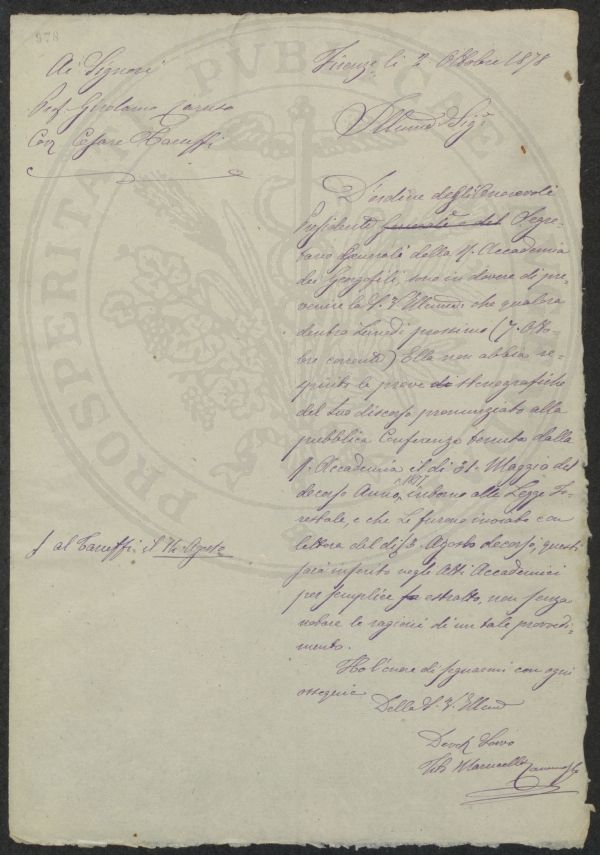 978
Ai Signori
Prof. Girolamo Caruso
Cesare Taruffi
Firenze, li 2 Ottobre 1878
Illumo Sigr
D'ordine degli Onorevoli
Presidente Generale e del Segre-
tario Generale della R. Accademia
dei Georgofili, sono in dovere di pre-
venire la S. V. Illuma che qualora
dentro Lunedì prossimo (7 Otto-
bre corrente) Ella non abbia re-
spinto le prove di stenografiche
del suo discorso pronunziato alla
pubblica Conferenza tenuta dalla
R. Accademia il dì 31 Maggio del
decorso Anno 1877 intorno alla Legge Fo-
restale, e che Le furono inviate con
lettera del dì 3 Agosto decorso, questi
sarà inserito negli Atti Accademici
per semplice estratto, non senza
notare le ragioni di un tale provvedi-
mento.
Ho l'onore di segnarmi con ogni
ossequio
Della S. V. Illuma
al Taruffi il 16 Agosto
PROSPERITATI PUBLICAE